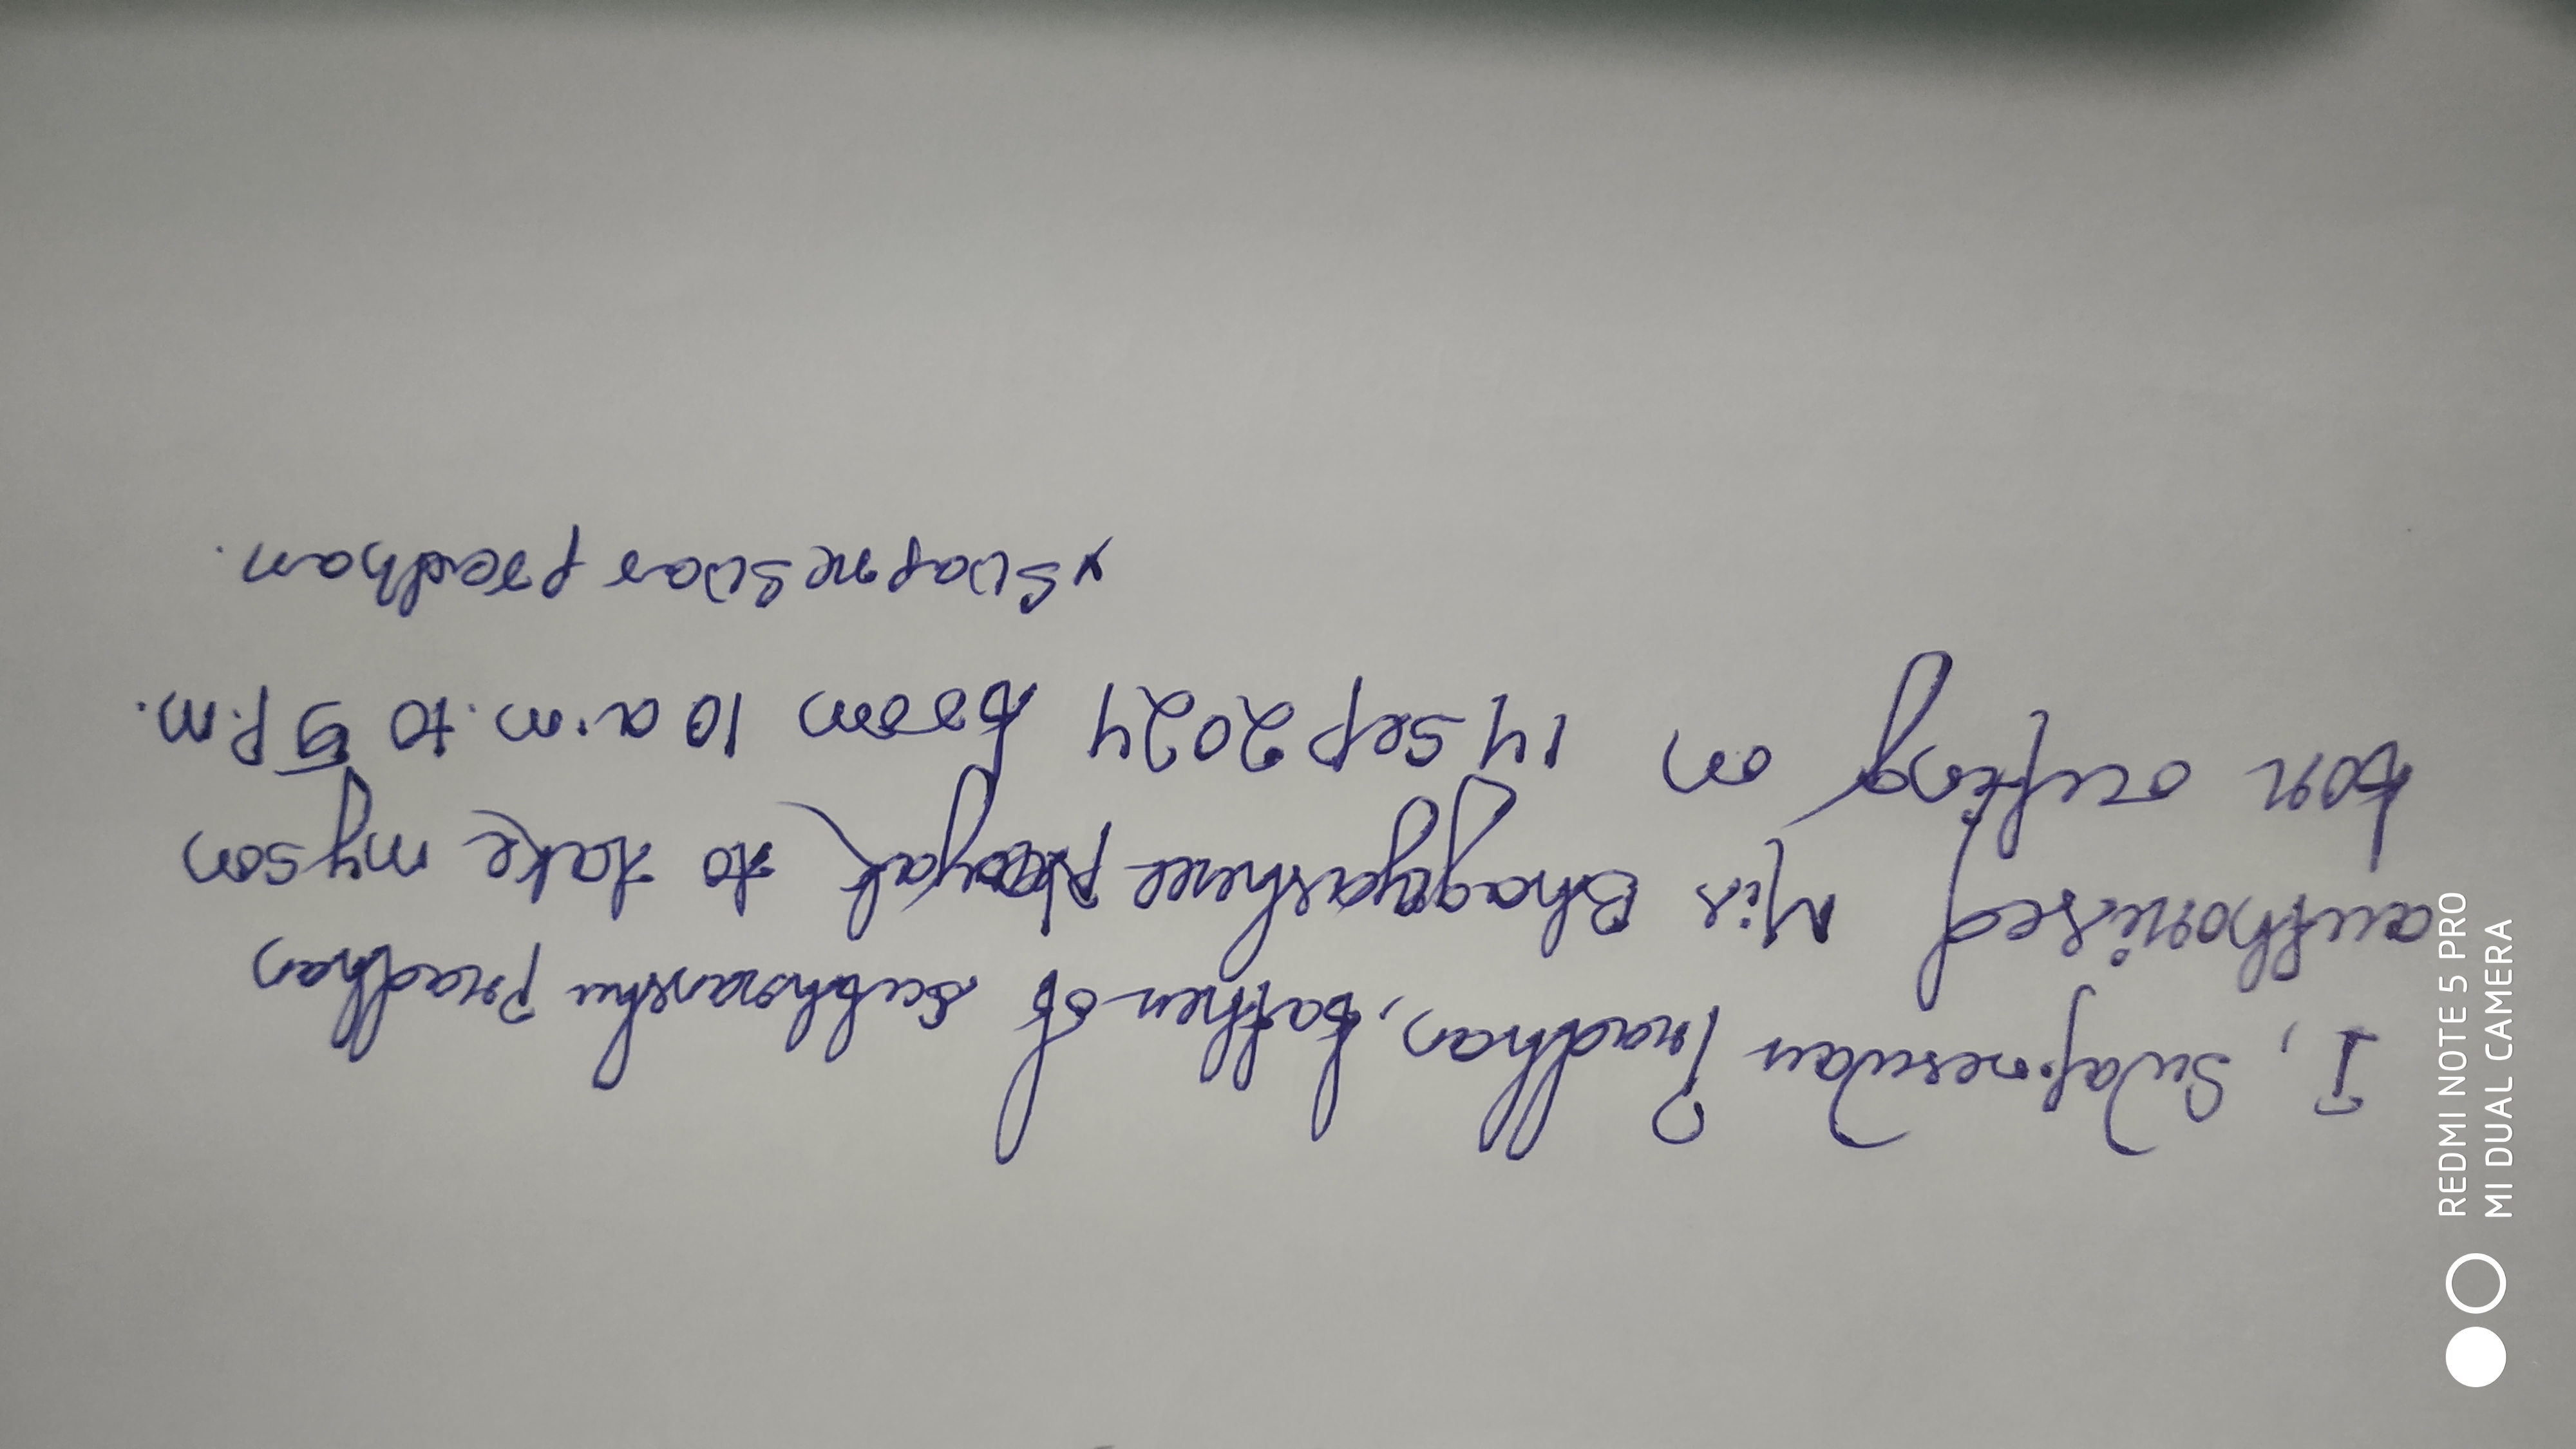 I, Swapneswar Pradhan, father of Subhranshu Pradhan
authorised Mis Bhagyashree to take my son
for outing on 14 Sep 2024 from 10 a.m. to 5 P.m.
x Swapneswar pradhan.
REDMI NOTE 5 PRO
MI DUAL CAMERA